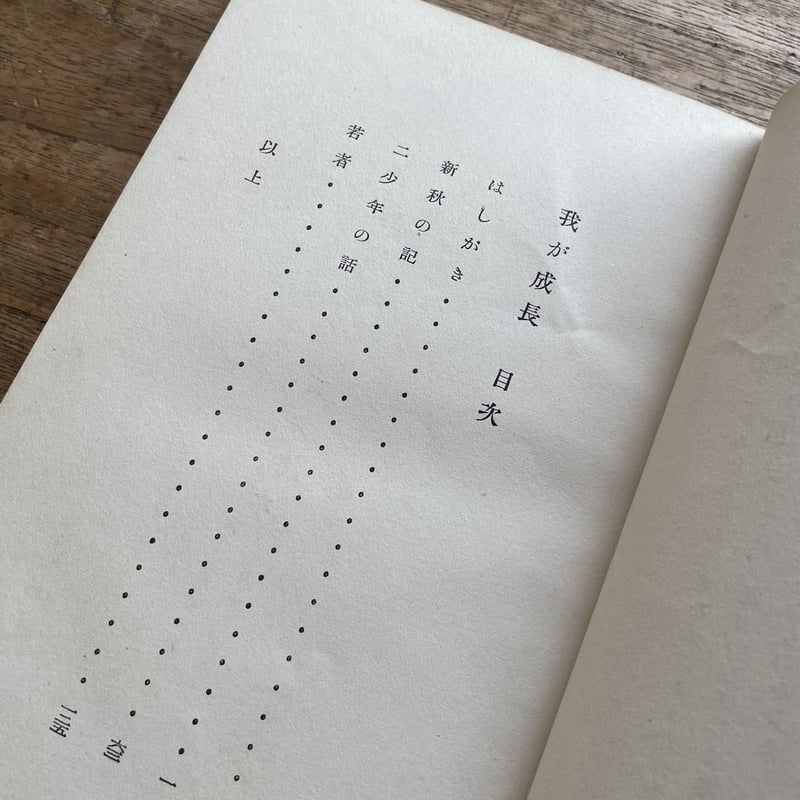 我が成長 目次
はしがき・・・・・・・・・・・・・・・・・・・
新秋の記・・・・・・・・・・・・・・・・・・一
二少年の話・・・・・・・・・・・・・・・・
若者・・・・・・・・・・・・・・・・・・・・一三五
以上